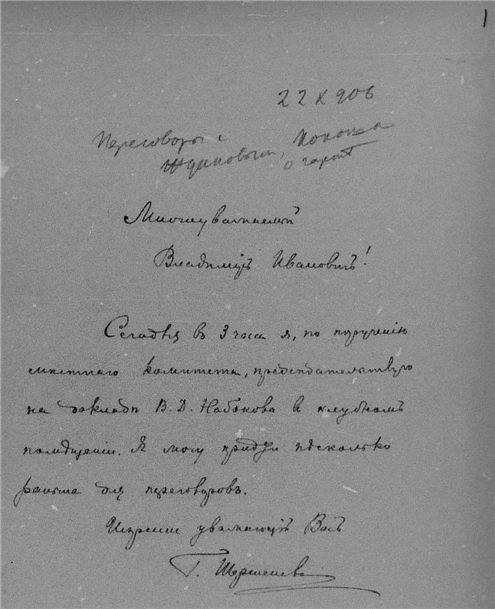 1
22 X 906
Переговоры с
Ждановым,
о гарант
Многоуважаемый
Владимiръ Ивановичъ!
Сегодня въ 3 часа я, по порученiю
мѣстнаго комитета, предсѣдательствую
на докладѣ В. Д. Набокова въ клубномъ
помѣщенiи. Я могу придти нѣсколько
раньше для переговоровъ.
Искренно уважающiй Васъ
Г. Шершеневичъ